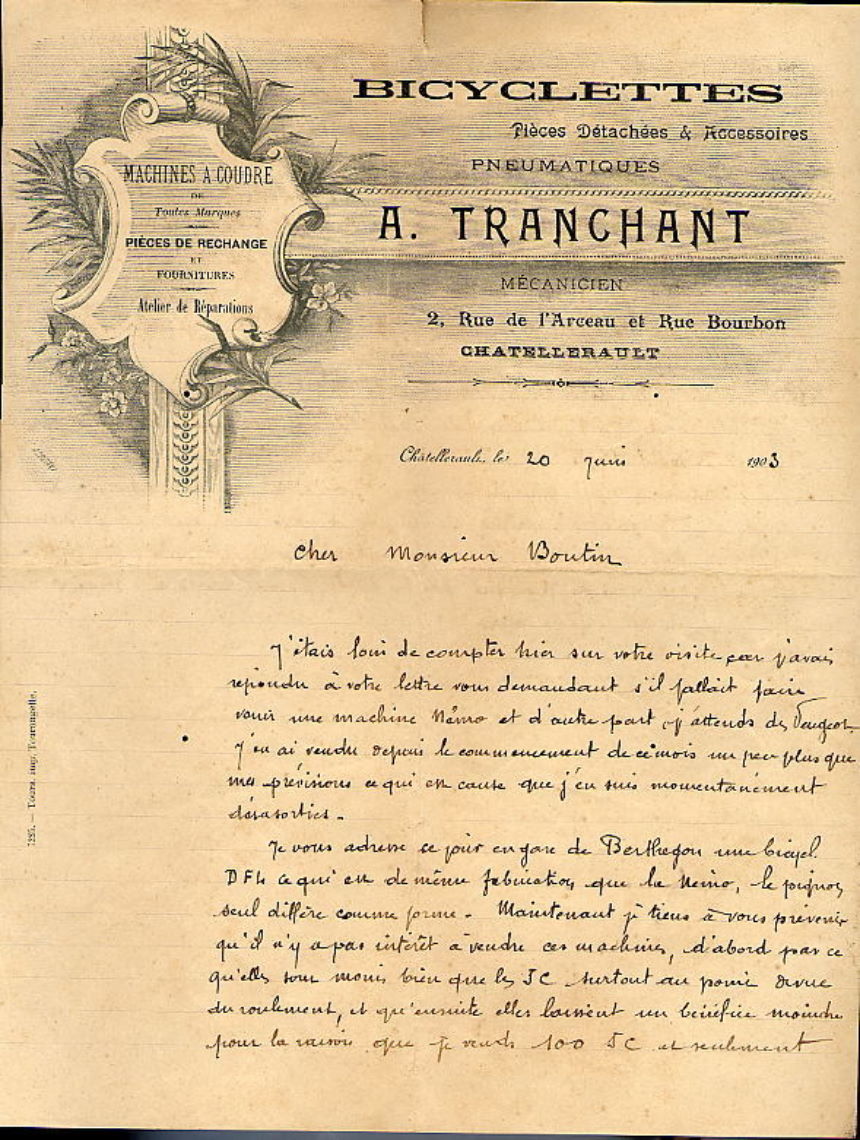 BICYCLETTES
Pièces Détachées & Accessoires
PNEUMATIQUES
A. TRANCHANT
MÉCANICIEN
2, Rue de l'Arceau et Rue Bourbon
CHATELLERAULT
MACHINES A COUDRE
DE
Toutes Marques
PIÈCES DE RECHANGE
ET
FOURNITURES
Atelier de Réparations
Châtellerault, le 20 juin 1903
Cher Monsieur Boutin
J'étais loin de compter hier sur votre visite car j'avais
repondu à votre lettre vous demandant s'il fallait faire
venir une machine Némo et d'autre part j'attends des Peugeot.
J'en ai vendu depuis le commencement de ce mois un peu plus que
mes prévisions ce qui est cause que j'en suis momentanément
désasorties.
Je vous adresse ce jour en gare de Berthegon une bicycl.
ce qui est de même fabrication que la Némo, le pignon
seul diffère comme forme. Maintenant je tiens à vous prévenir
qu'il n'y a pas intérêt à vendre ces machines, d'abord par ce
qu'elles sont moins bien que les JC surtout au point de vue
du roulement, et qu'ensuite elles laissent un bénéfice moindre
pour la raison que je vends 100 JC et seulement
7225. — Tours, imp. Tourangelle.